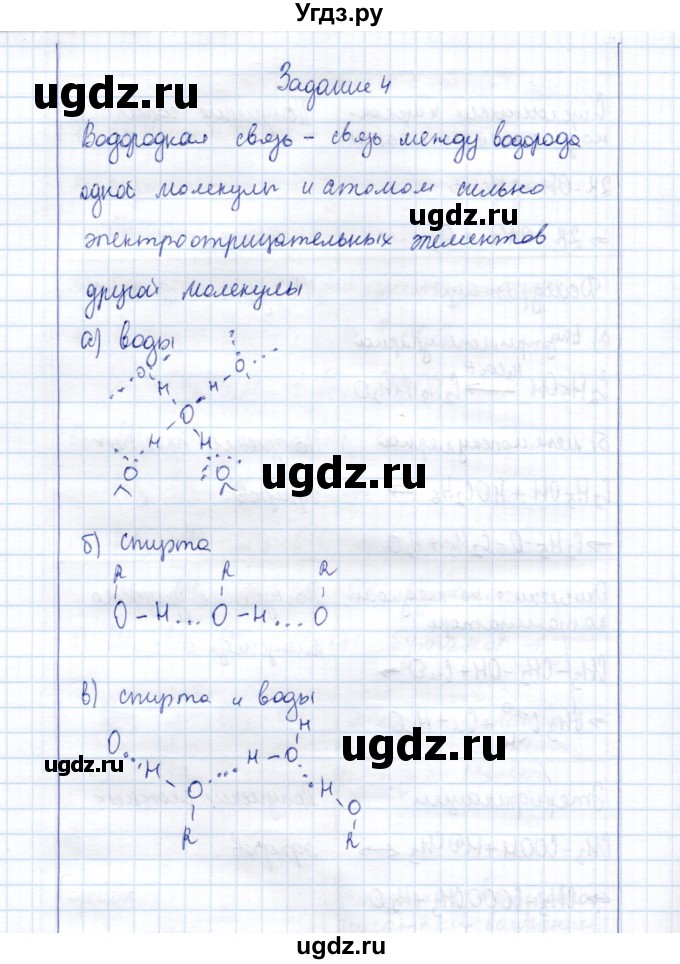 Угдз.ру
Задание 4
ugdz.ru
Водородная связь – связь между водорода
одной молекулы и атомом сильно
ugdz.ru
электроотрицательных элементов
другой молекулы
а) воды
O O
H H
O
H H
O O
ugdz.ru
б) спирта
R R R
O – H ... O – H ... O
в) спирта и воды
H
O H – O
ugdz.ru
ugdz.ru
H O H
O
R R
ugdz.ru